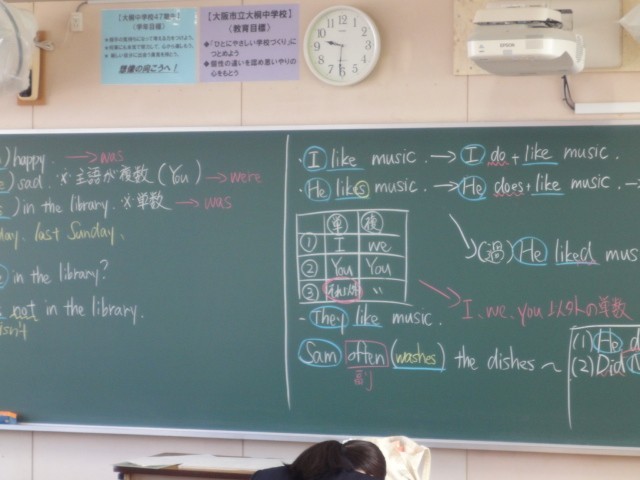 【大桐中学校47期生】
《学年目標》
想像の向こうへ!
【大阪市立大桐中学校】
《教育目標》
◆「ひとにやさしい学校づくり」に
つとめよう
◆個性の違いを認め思いやりの
心をもとう
EPSON
happy. → was
sad. ※主語が複数 (You) → were
) in the library. ※単数 → was
last Sunday、
in the library?
not in the library.
isn't
・I like music. → I do + like music.
・He likes music. → He does + like music. →
単 複
① I we
② You You
③ それ以外 〃
(過) He liked mus
→ I、we、you 以外の単数
- They like music.
Sam often (washes) the dishes ~
副
(1) He d
(2) Did